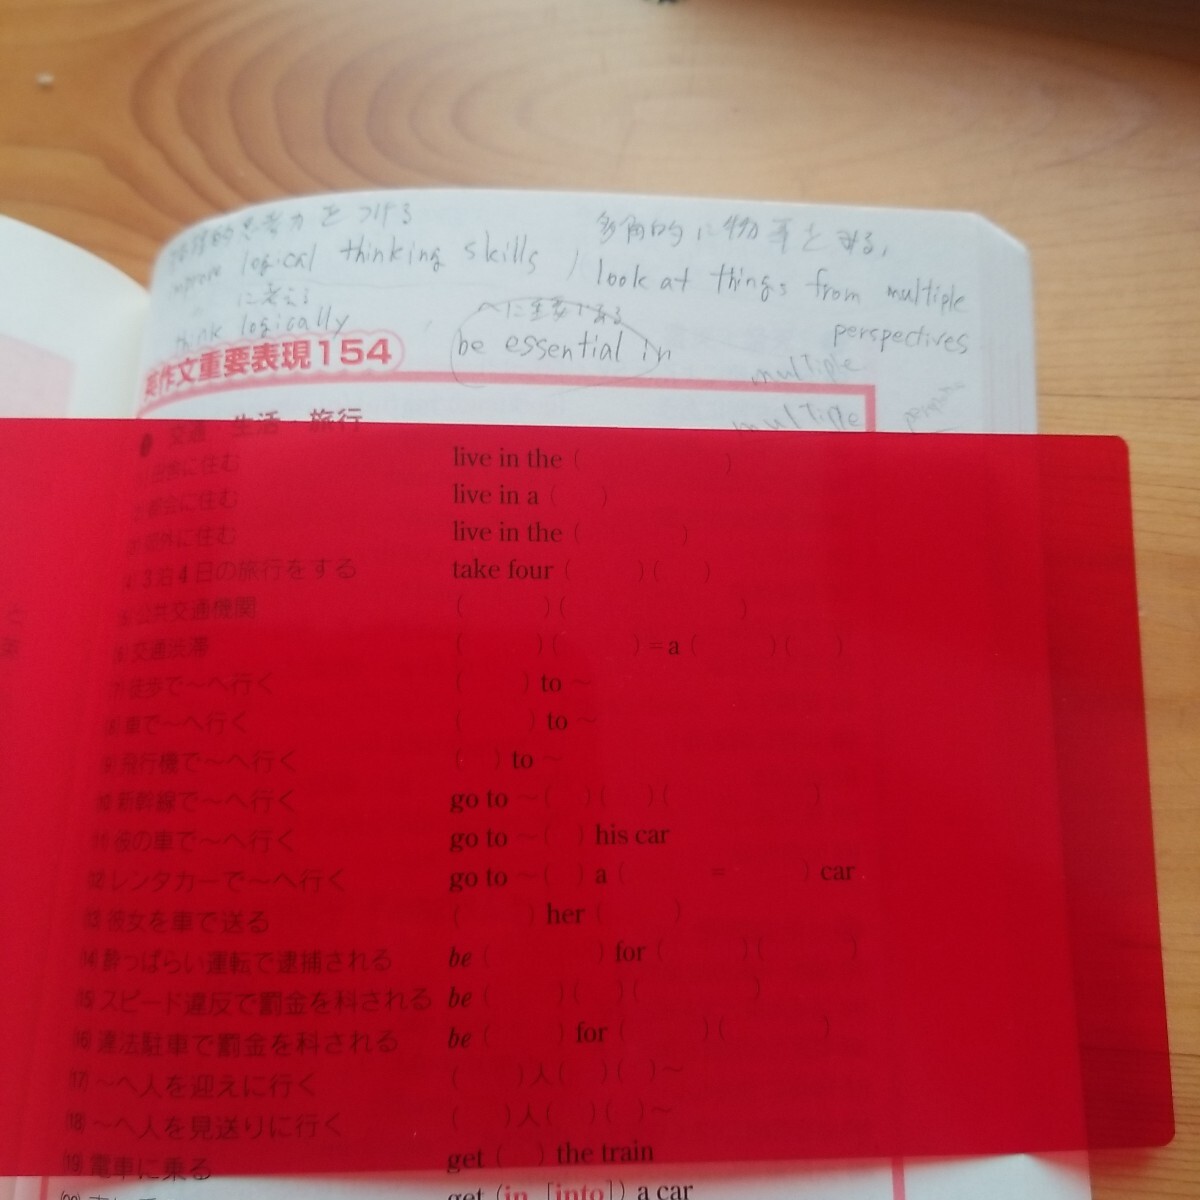 論理的思考力をつける
improve logical thinking skills
に考える
think logically
多角的に物事をみる,
look at things from multiple
perspectives
へに重要である
be essential in
multiple
multiple
英作文重要表現154
交通・生活・旅行
に住む live in the ( )
(2) 都会に住む live in a ( )
(3) 郊外に住む live in the ( )
(4) 3泊4日の旅行をする take four ( )( )
(5) 公共交通機関 ( )( )
(6) 交通渋滞 ( )( ) = a ( )( )
(7) 徒歩で〜へ行く ( ) to 〜
(8) 車で〜へ行く ( ) to 〜
(9) 飛行機で〜へ行く ( ) to 〜
(10) 新幹線で〜へ行く go to 〜 ( )( )( )
(11) 彼の車で〜へ行く go to 〜 ( ) his car
(12) レンタカーで〜へ行く go to 〜 ( ) a ( = ) car
(13) 彼女を車で送る ( ) her ( )
(14) 酔っぱらい運転で逮捕される be ( ) for ( )( )
(15) スピード違反で罰金を科される be ( )( )( )
(16) 違法駐車で罰金を科される be ( ) for ( )( )
(17) 〜へ人を迎えに行く ( )人( )( )〜
(18) 〜へ人を見送りに行く ( )人( )( )〜
(19) 電車に乗る get ( ) the train
(20) get (in [into]) a car